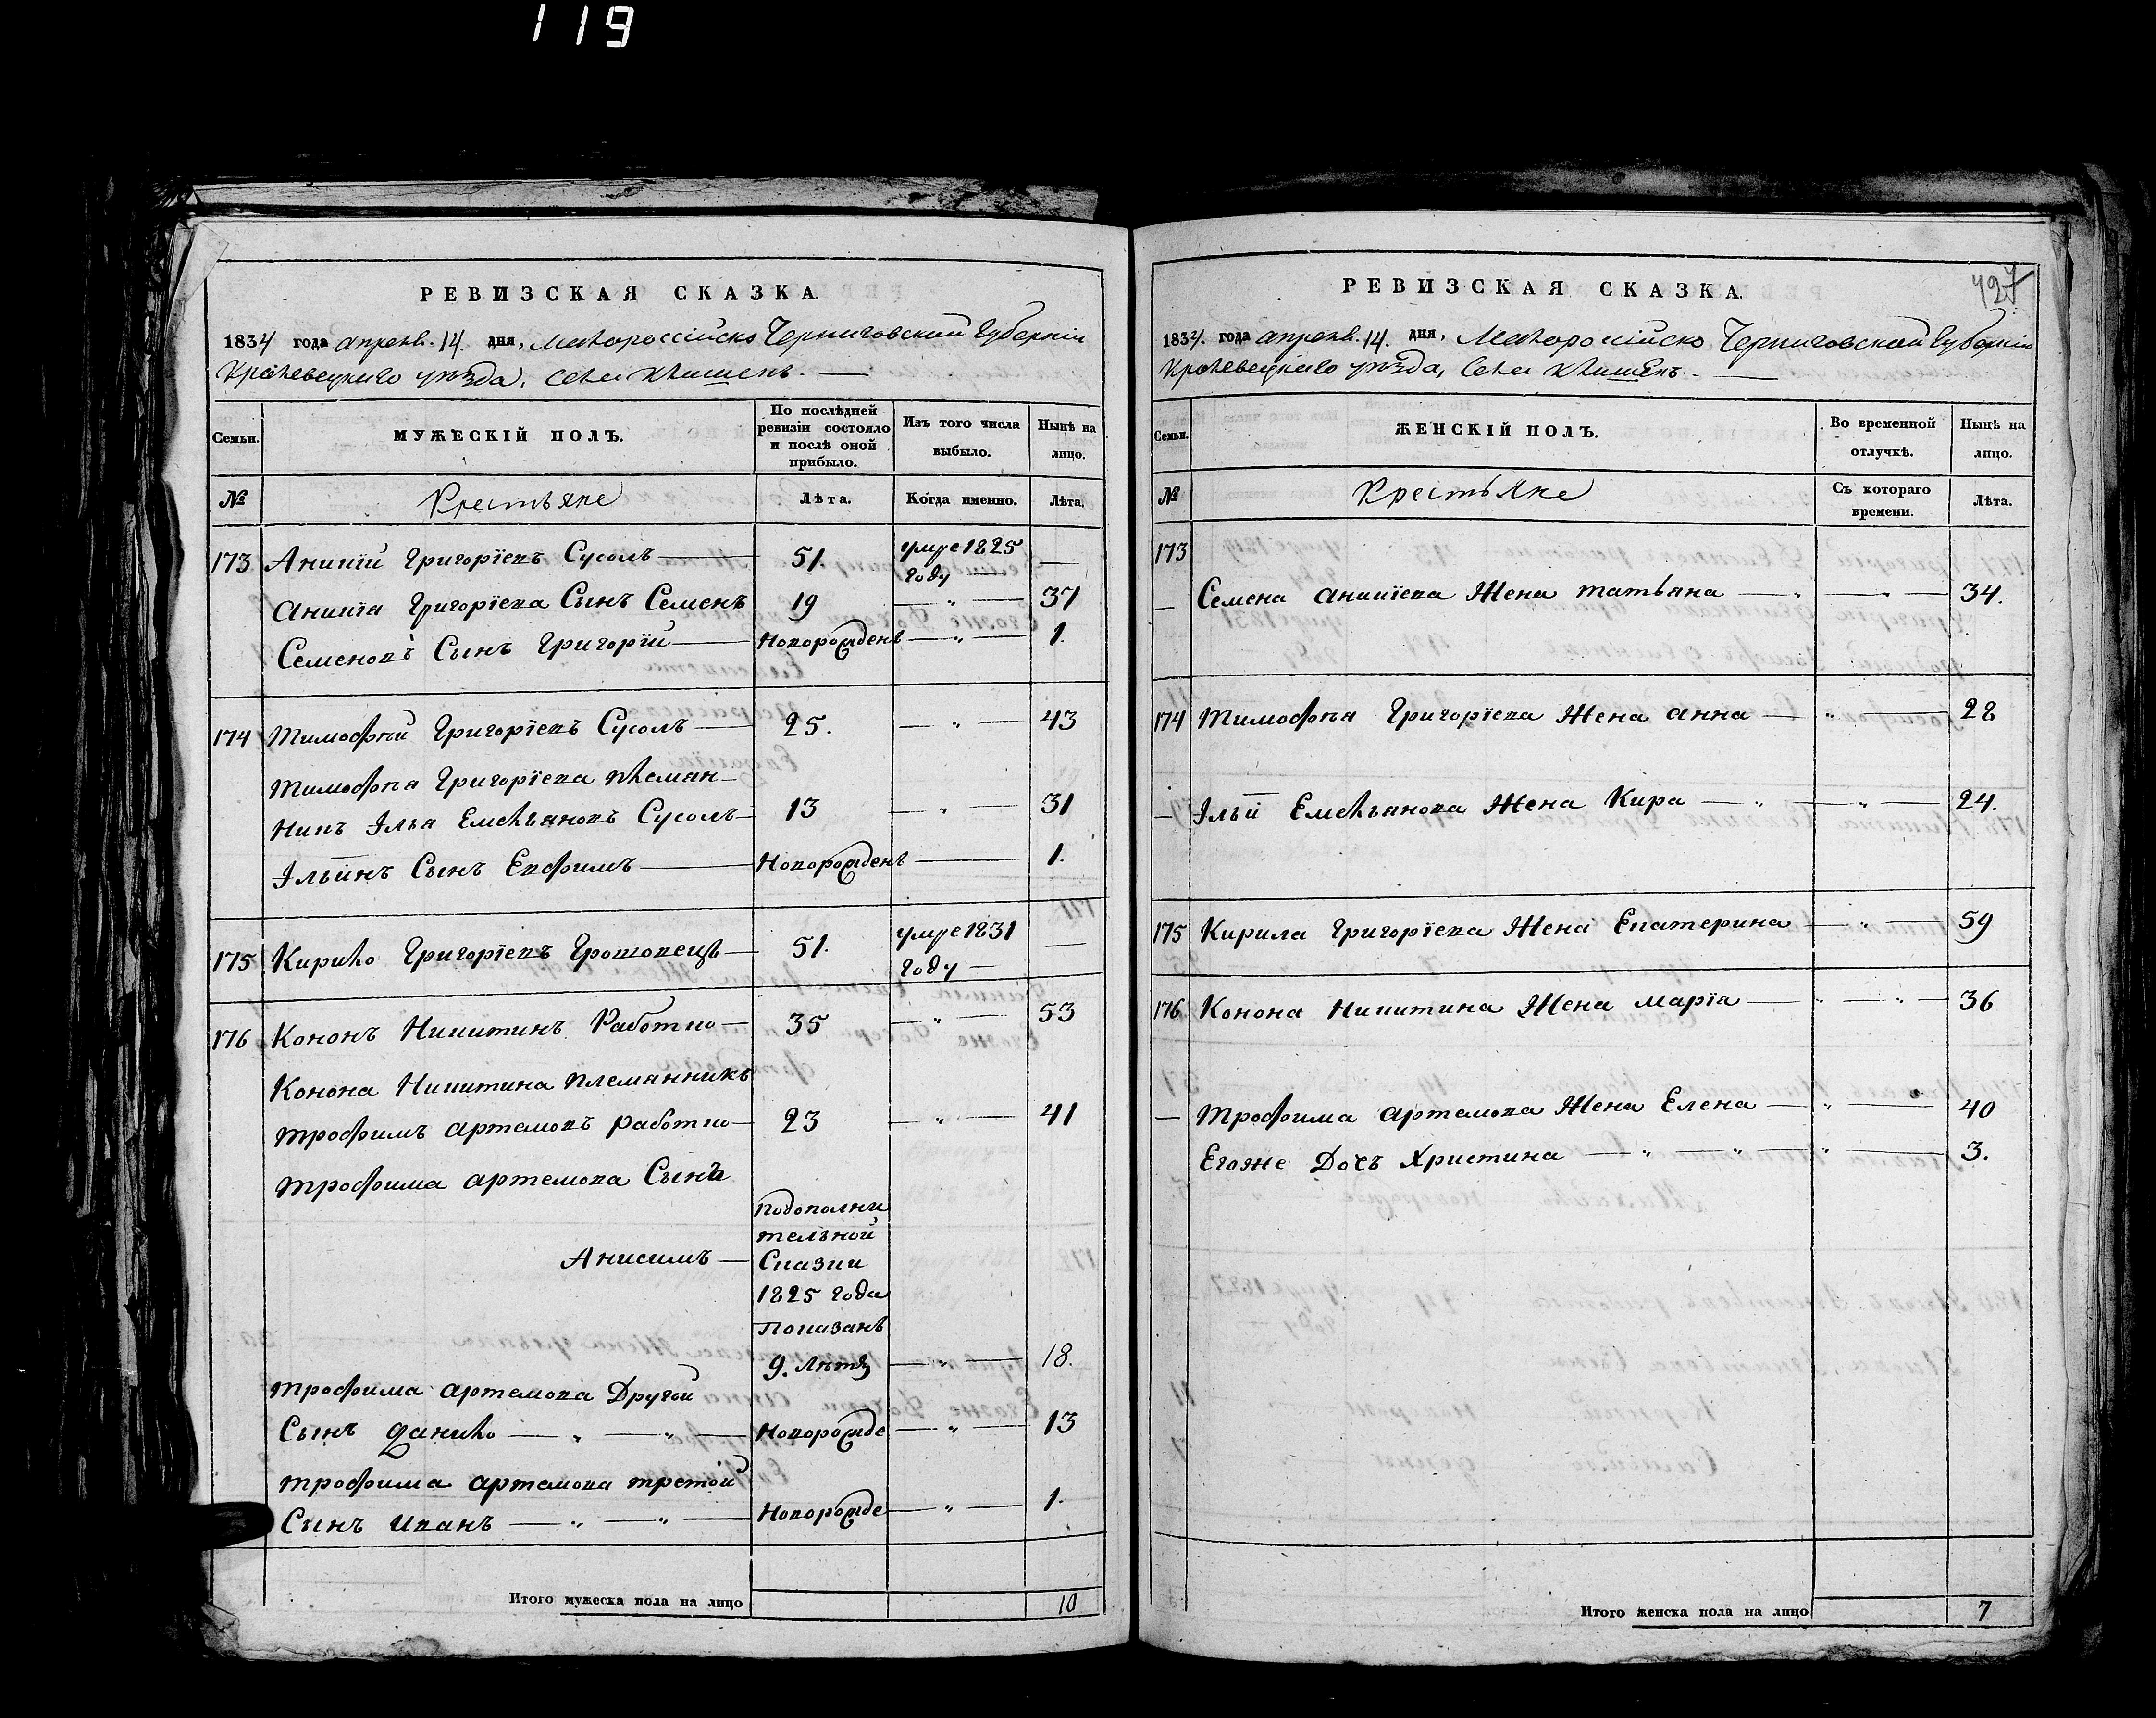 119
РЕВИЗСКАЯ СКАЗКА.
1834 года апреля 14 дня, Малороссійско Черниговской Губерніи
Кролевецкого уѣзда, села Клишекъ.
Семьи.
МУЖЕСКІЙ ПОЛЪ.
По послѣдней ревизіи состояло и послѣ оной прибыло.
Изъ того числа выбыло.
Нынѣ на лицо.
№ Крестьяне Лѣта. Когда именно. Лѣта.
173 Ананій Григоріевъ Сусолъ — 51. умре 1825 году —
Ананія Григоріева Сынъ Семенъ 19 — „ — 37
Семеновъ Сынъ Григорій — Новорожденъ — „ — 1.
174 Тимофѣй Григоріевъ Сусолъ — 25. — „ — 43
Тимофѣя Григоріева племян-
никъ Ілья Емельяновъ Сусолъ — 13 — „ — 31
Ільинъ Сынъ Евфимъ — Новорожденъ — 1.
175 Кирило Григоріевъ — 51. умре 1831 году —
176 Кононъ Никитинъ Работко — 35 — „ — 53
Конона Никитина племянникъ
Трофимъ Артемовъ Работко — 23 — „ — 41
Трофима Артемова Сынъ
Анисимъ —
Подополни
тельной
Сказки
1825 года
Показанъ
9. лѣтъ — „ — 18.
Трофима Артемова Другой
Сынъ Данило — „ — „ — Новорожде — „ — 13
Трофима Артемова третой
Сынъ Иванъ — „ — „ — Новорожде — „ — 1.
Итого мужеска пола на лицо 10
427
РЕВИЗСКАЯ СКАЗКА.
1834 года апреля 14 дня, Малоросійско Черниговской Губерніи
Кролевецкого уѣзда, села Клишекъ.
Семьи.
ЖЕНСКІЙ ПОЛЪ.
Во временной отлучкѣ.
Нынѣ на лицо.
№ Крестьяне Съ котораго времени. Лѣта.
173
— Семена Ананіева Жена Татьяна — „ — „ — 34.
174 Тимофѣя Григоріева Жена Анна — „ — 28
— Ільи Емельянова Жена Кира — „ — „ — 24.
175 Кирила Григоріева Жена Екатерина — „ — 59
176 Конона Никитина Жена Марія — „ — „ — 36
— Трофима Артемова Жена Елена — „ — 40
Егоже Дочъ Христина — „ — „ — „ — 3.
Итого женска пола на лицо 7